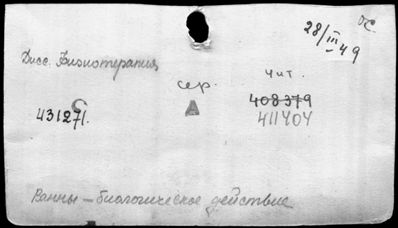 ОС
28/III-49
Дисс. Физиотерапия
сер.
чит.
С
431271.
А
408379
411404
Ванны - биологическое действие